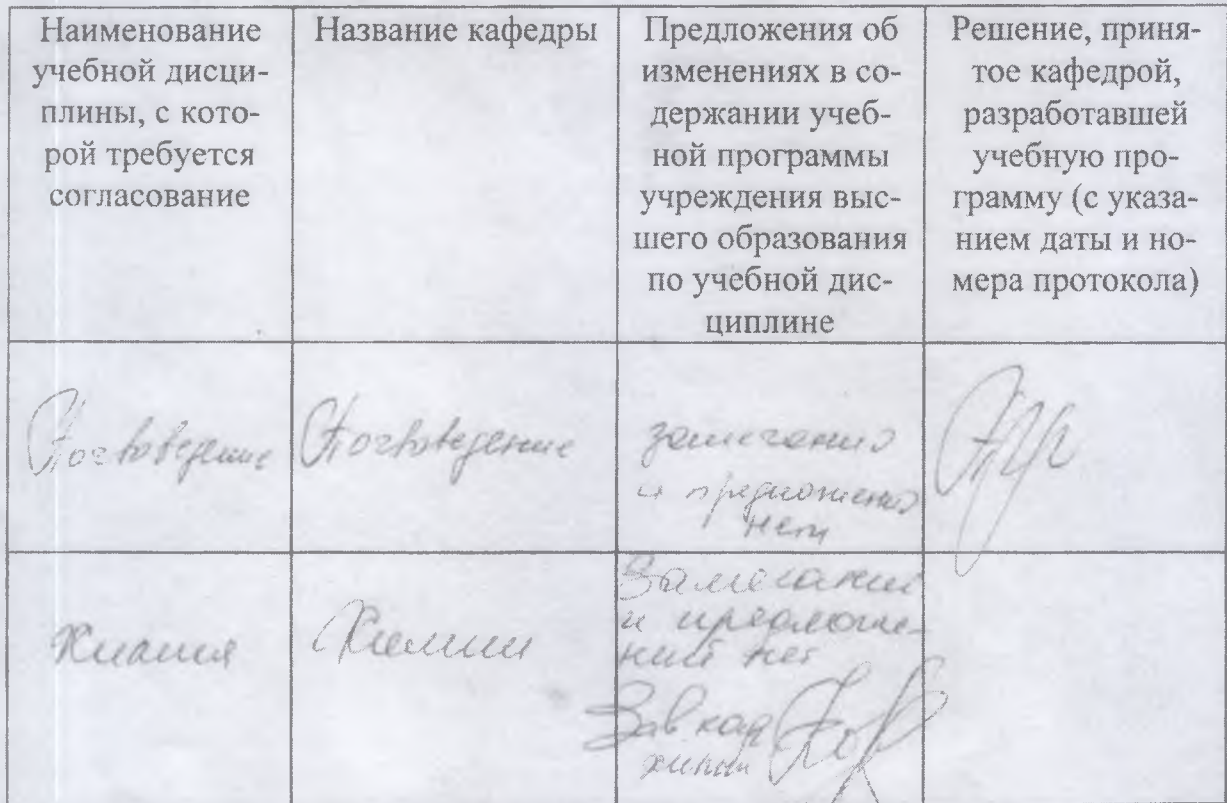 Наименование
учебной дисци-
плины, с кото-
рой требуется
согласование
Название кафедры
Предложения об
изменениях в со-
держании учеб-
ной программы
учреждения выс-
шего образования
по учебной дис-
циплине
Решение, приня-
тое кафедрой,
разработавшей
учебную про-
грамму (с указа-
нием даты и но-
мера протокола)
Почвоведение
Почвоведение
замечаний
и предложений
нет
Химия
Химии
Замечаний
и предложе-
ний нет
Зав каф
химии